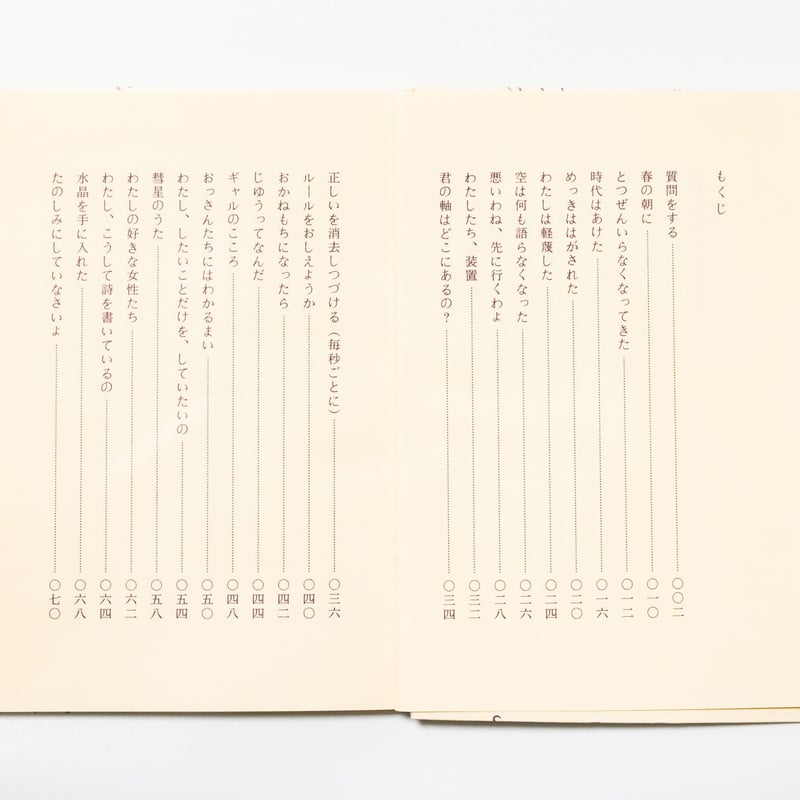 もくじ
質問をする 〇〇二
春の朝に 〇一〇
とつぜんいらなくなってきた 〇一二
時代はあけた 〇一六
めっきははがされた 〇二〇
わたしは軽蔑した 〇二四
空は何も語らなくなった 〇二六
悪いわね、先に行くわよ 〇二八
わたしたち、装置 〇三二
君の軸はどこにあるの？ 〇三四
正しいを消去しつづける（毎秒ごとに） 〇三六
ルールをおしえようか 〇四〇
おかねもちになったら 〇四二
じゆうってなんだ 〇四四
ギャルのこころ 〇四八
おっさんたちにはわかるまい 〇五〇
わたし、したいことだけを、していたいの 〇五四
彗星のうた 〇五八
わたしの好きな女性たち 〇六二
わたし、こうして詩を書いているの 〇六四
水晶を手に入れた 〇六八
たのしみにしていなさいよ 〇七〇